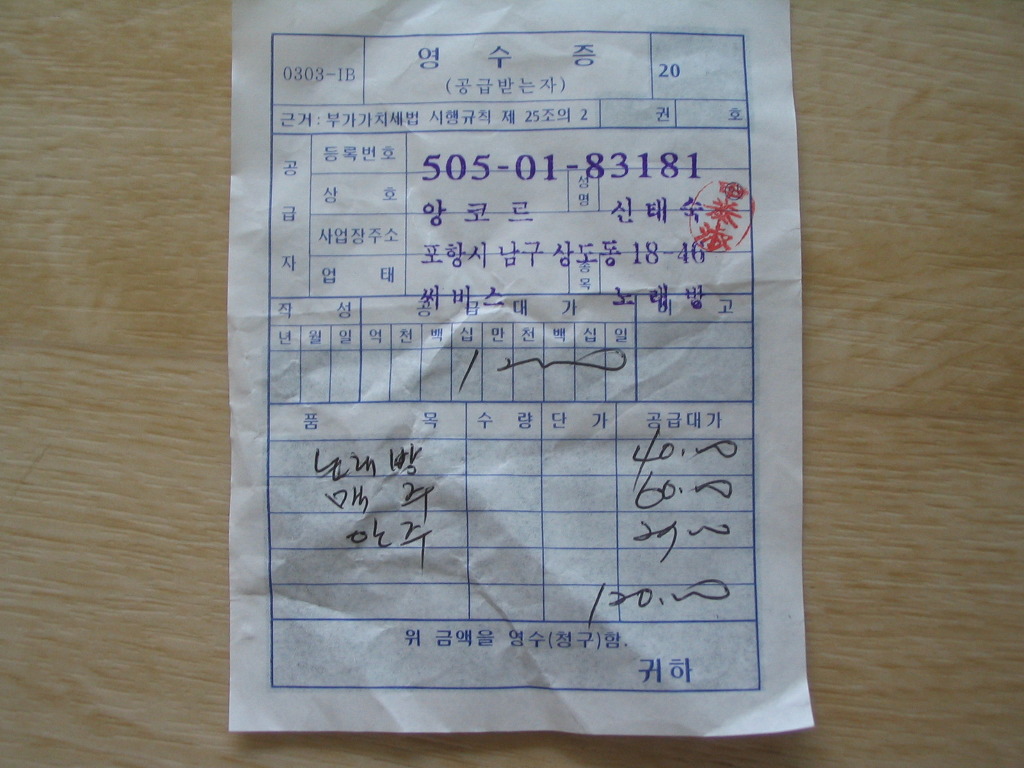 0303-IB
영 수 증
(공급받는자)
20
근거 : 부가가치세법 시행규칙 제 25조의 2
권 호
공급자
등록번호 505-01-83181
상 호 앙코르 성명 신태숙
사업장주소 포항시 남구 상도동 18-46
업 태 써비스 종목 노래방
작 성 공 급 대 가 비 고
년 월 일 억 천 백 십 만 천 백 십 일
품 목 수 량 단 가 공급대가
노래방 40.00
맥 주 60.00
안 주
120.00
위 금액을 영수(청구)함.
귀하